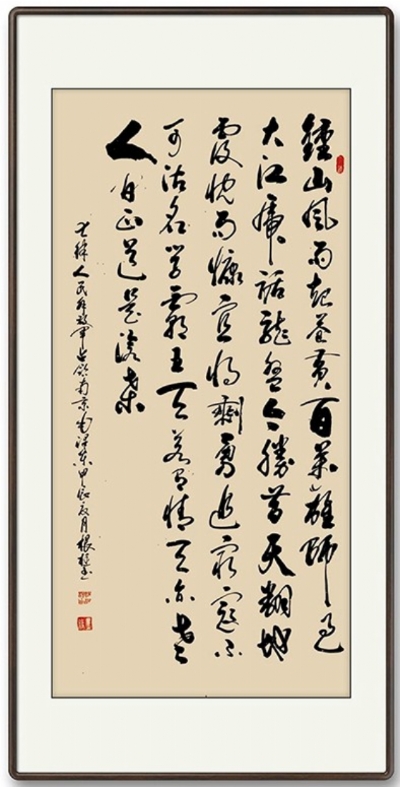 鍾山風雨起蒼黃百萬雄師過
大江虎踞龍盤今勝昔天翻地
覆慨而慷宜將剩勇追窮寇不
可沽名學霸王天若有情天亦老
人間正道是滄桑
七律人民解放軍占領南京毛澤東甲辰